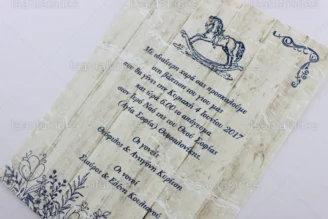 Με ιδιαίτερη χαρά σας προσκαλούμε
στη βάπτιση του γιου μας
που θα γίνει την Κυριακή 4 Ιουνίου 2017
και ώρα 6.00 το απόγευμα
στον Ιερό Ναό της του Θεού Σοφίας
(Αγία Σοφία) Θεσσαλονίκης.
Οι γονείς
Οι νονοί